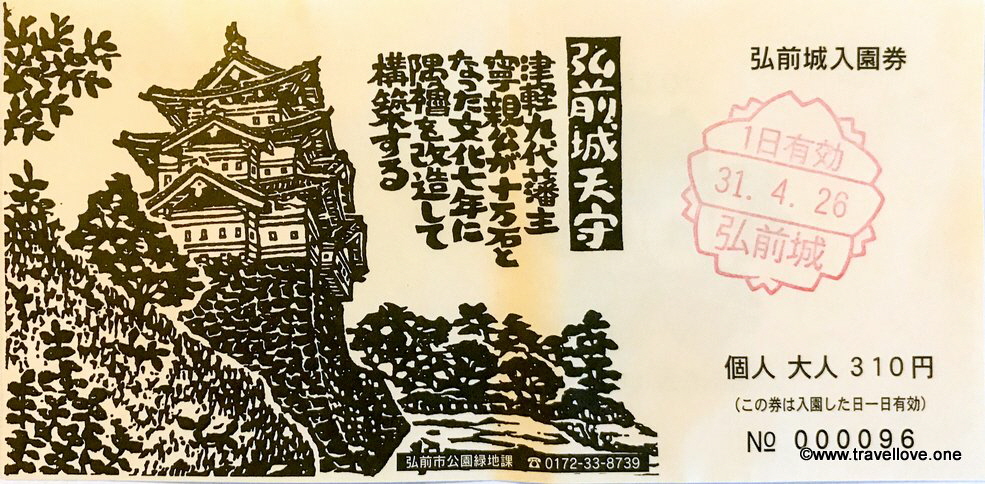 弘前城天守
津軽九代藩主
寧親公が十万石と
なった文化七年に
隅櫓を改造して
構築する
弘前城入園券
1日有効
31.4.26
弘前城
個人 大人 310円
(この券は入園した日一日有効)
№ 000096
弘前市公園緑地課 ☎0172-33-8739
©www.travellove.one